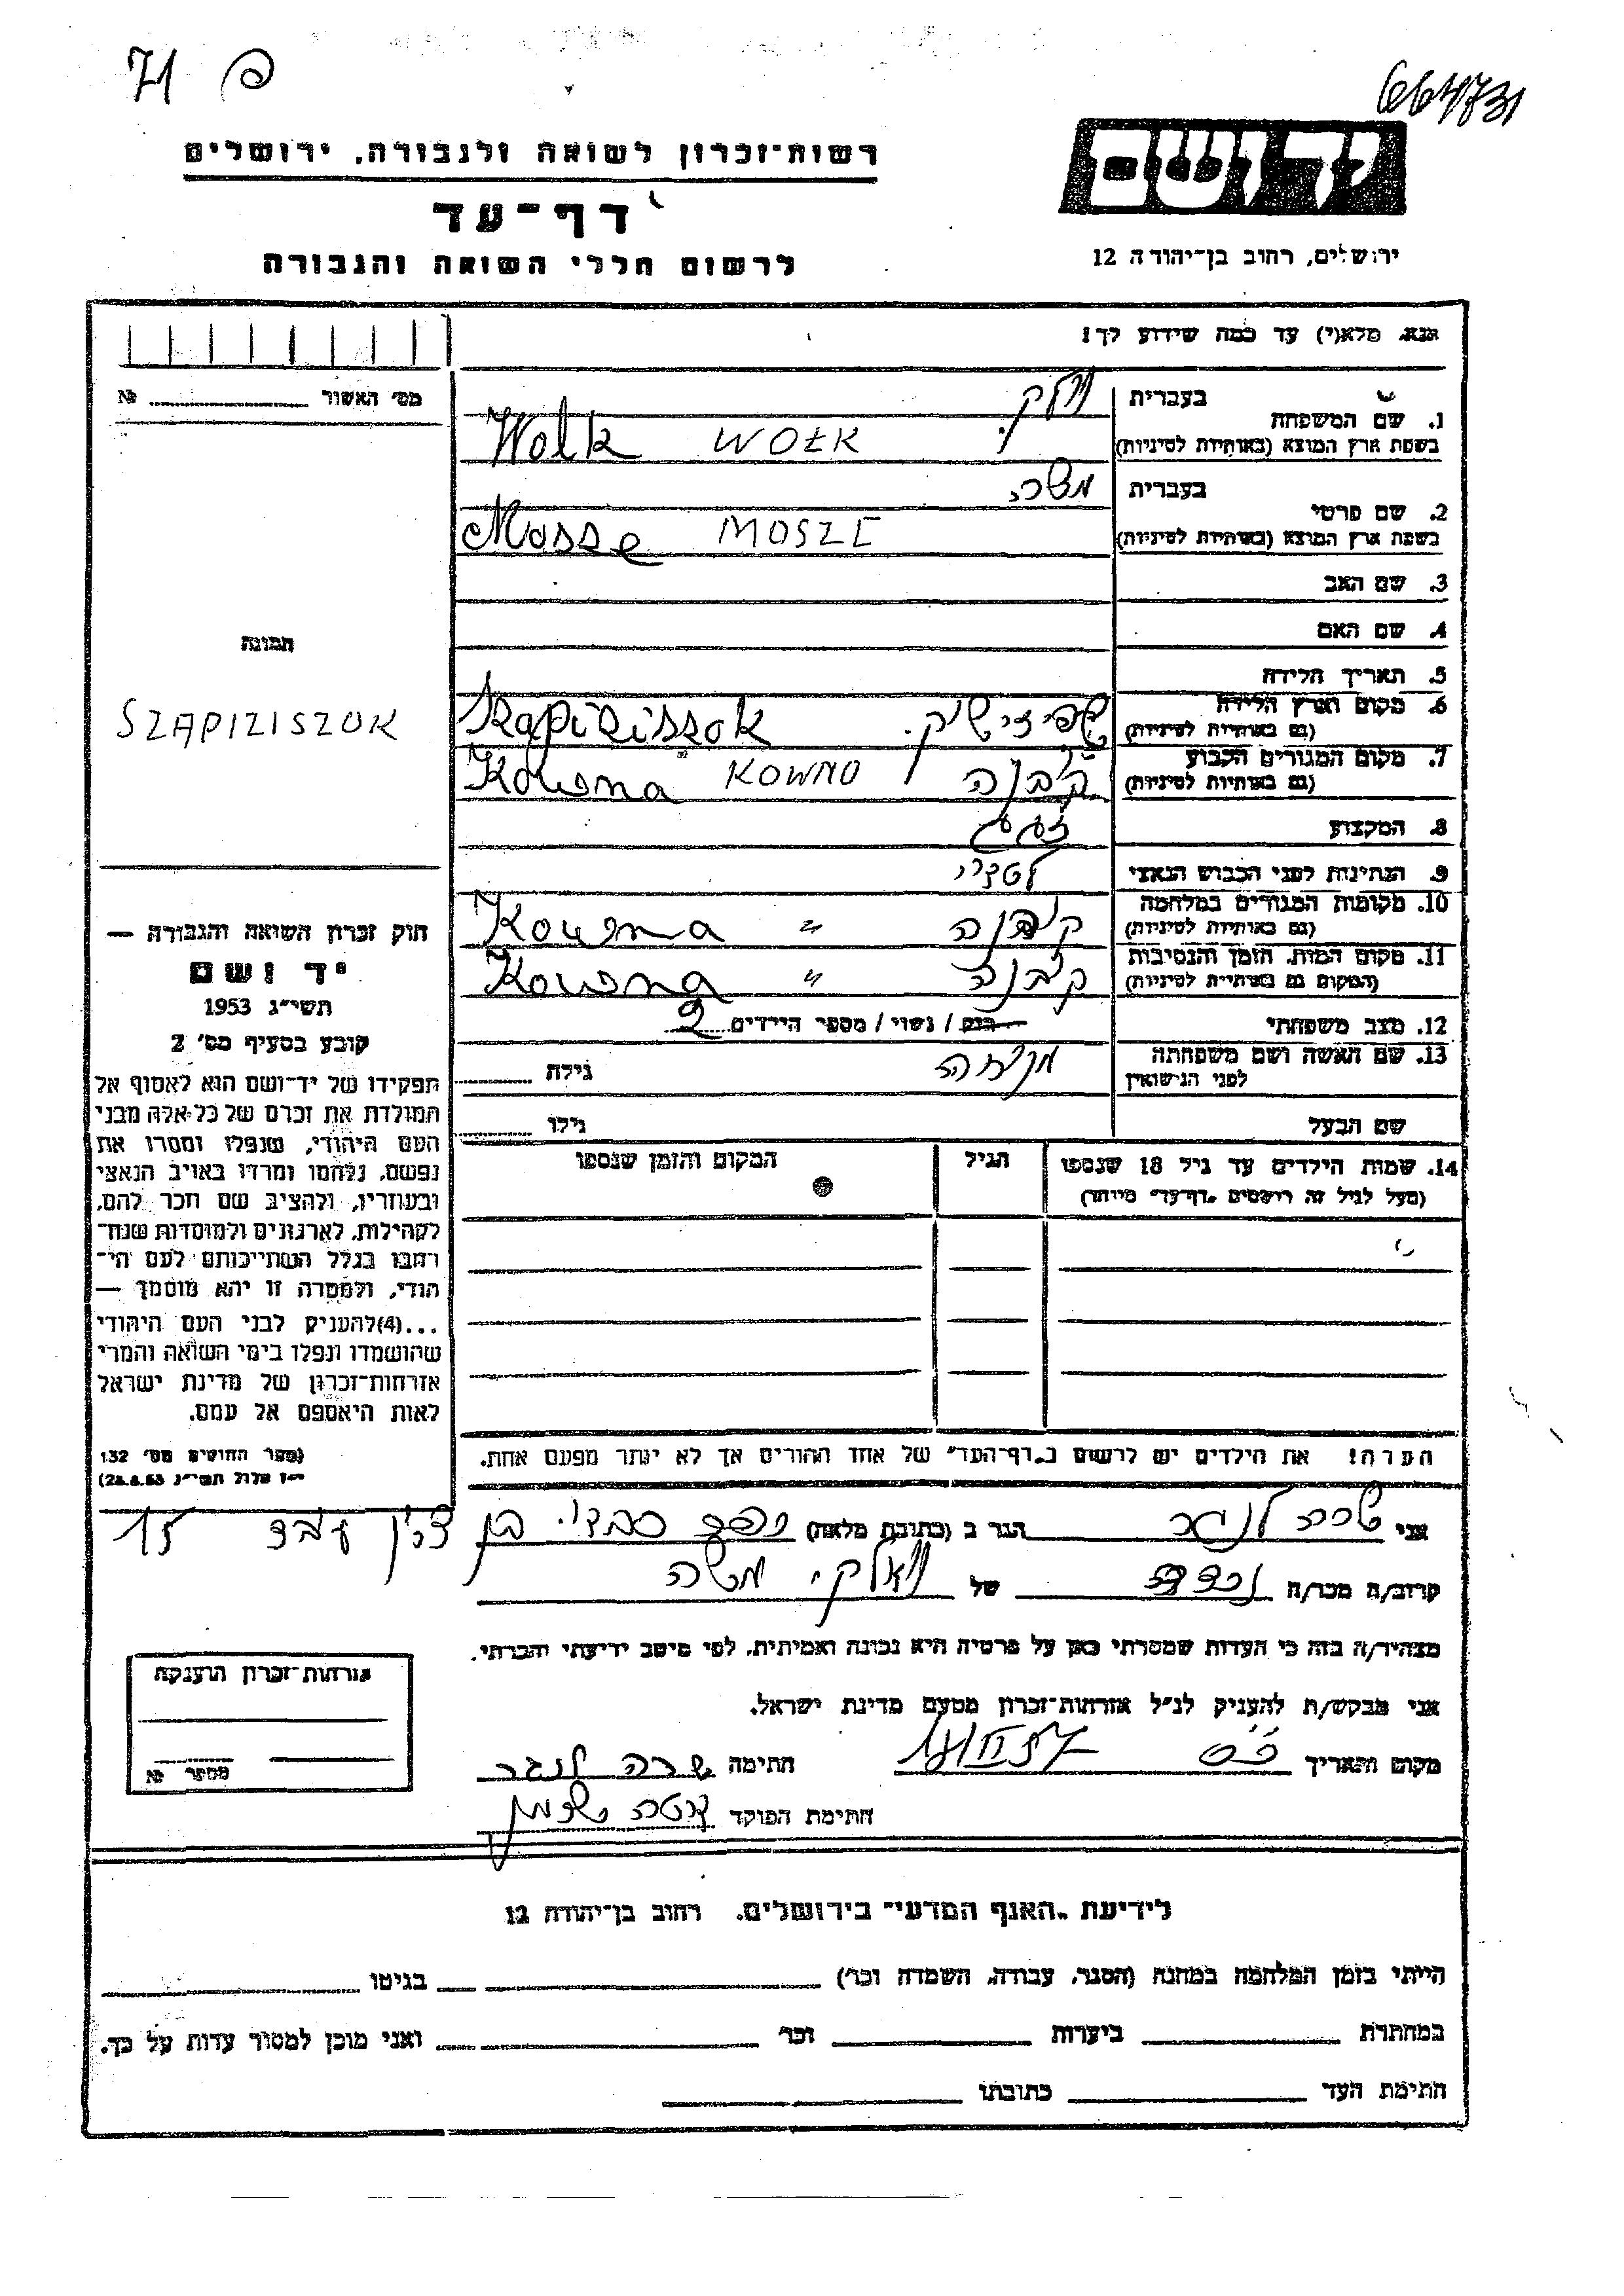 664731
71 פ
יד ושם
ירושלים, רחוב בן־יהודה 12
רשות־זכרון לשואה ולגבורה, ירושלים
דף־עד
לרשום חללי השואה והגבורה
נא מלא(י) עד כמה שידוע לך!
מס' האשור № 
1. שם המשפחה
בעברית וולק.
בשפת ארץ המוצא (באותיות לטיניות) Wolk WOŁK
2. שם פרטי
בעברית משה.
בשפת ארץ המוצא (באותיות לטיניות) Mosze MOSZE
3. שם האב
4. שם האם
5. תאריך הלידה
6. מקום וארץ הלידה
(גם באותיות לטיניות) שפיזישוק. Szapiziszok
7. מקום המגורים הקבוע
(גם באותיות לטיניות) קובנה KOWNO Kowna
8. המקצוע
9. הנתינות לפני הכבוש הנאצי
10. מקומות המגורים במלחמה
(גם באותיות לטיניות) קובנה " Kowna
11. מקום המות, הזמן והנסיבות
(המקום גם באותיות לטיניות) קובנה " Kowna
12. מצב משפחתי רווק / נשוי / מספר הילדים 2
13. שם האשה ושם משפחתה
לפני הנישואין גילה
שם הבעל גילו
14. שמות הילדים עד גיל 18 שנספו
(מעל לגיל זה רושמים "דף־עד" מיוחד)
הגיל
המקום והזמן שנספו
הערה! את הילדים יש לרשום ב"דף־העד" של אחד ההורים אך לא יותר מפעם אחת.
תמונה
SZAPIZISZOK
חוק זכרון השואה והגבורה —
יד ושם
תשי"ג 1953
קובע בסעיף מס' 2
תפקידו של יד־ושם הוא לאסוף אל
המולדת את זכרם של כל אלה מבני
העם היהודי, שנפלו ומסרו את
נפשם, נלחמו ומרדו באויב הנאצי
ובעוזריו, ולהציב שם וזכר להם,
לקהילות, לארגונים ולמוסדות שנח־
רבו בגלל השתייכותם לעם הי־
הודי, ולמטרה זו יהא מוסמך —
...(4) להעניק לבני העם היהודי
שהושמדו ונפלו בימי השואה והמרי
אזרחות־זכרון של מדינת ישראל
לאות היאספם אל עמם.
(ספר החוקים מס' 132
י"ז אלול תשי"ג 28.8.53)
אני שרה לנגר הגר ב (כתובת מלאה) בן 15
קרוב/ה מכר/ה נכדה של וואלק. משה
מצהיר/ה בזה כי העדות שמסרתי כאן על פרטיה היא נכונה ואמיתית, לפי מיטב ידיעתי והכרתי.
אני מבקש/ת להעניק לנ"ל אזרחות־זכרון מטעם מדינת ישראל.
מקום ותאריך חתימה שרה לנגר
חתימת הפוקד
אזרחות־זכרון הוענקה
מספר №
לידיעת "האגף המדעי" בירושלים, רחוב בן־יהודה 12
הייתי בזמן המלחמה במחנה (הסגר, עבודה, השמדה וכו') בגיטו
במחתרת ביערות וכו' ואני מוכן למסור עדות על כך.
חתימת העד כתובתו